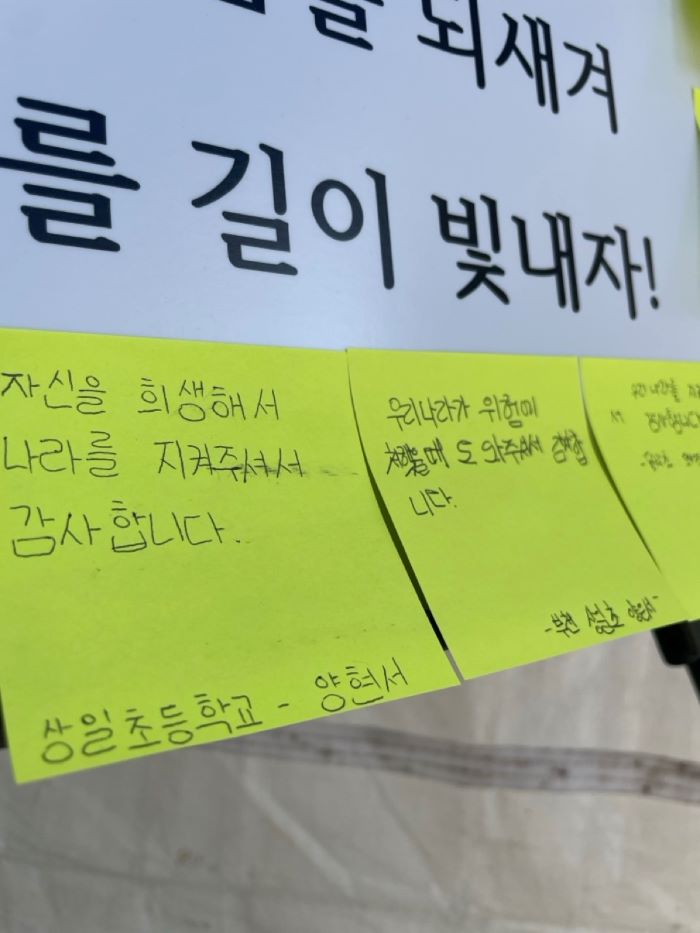 을 되새겨
를 길이 빛내자!
자신을 희생해서
나라를 지켜주셔서
감사합니다.
상일초등학교 - 양현서
우리나라가 위험에
처했을때 도와주셔서 감사합
니다.
-부천 상일초
우리나라를
서 감사합니다